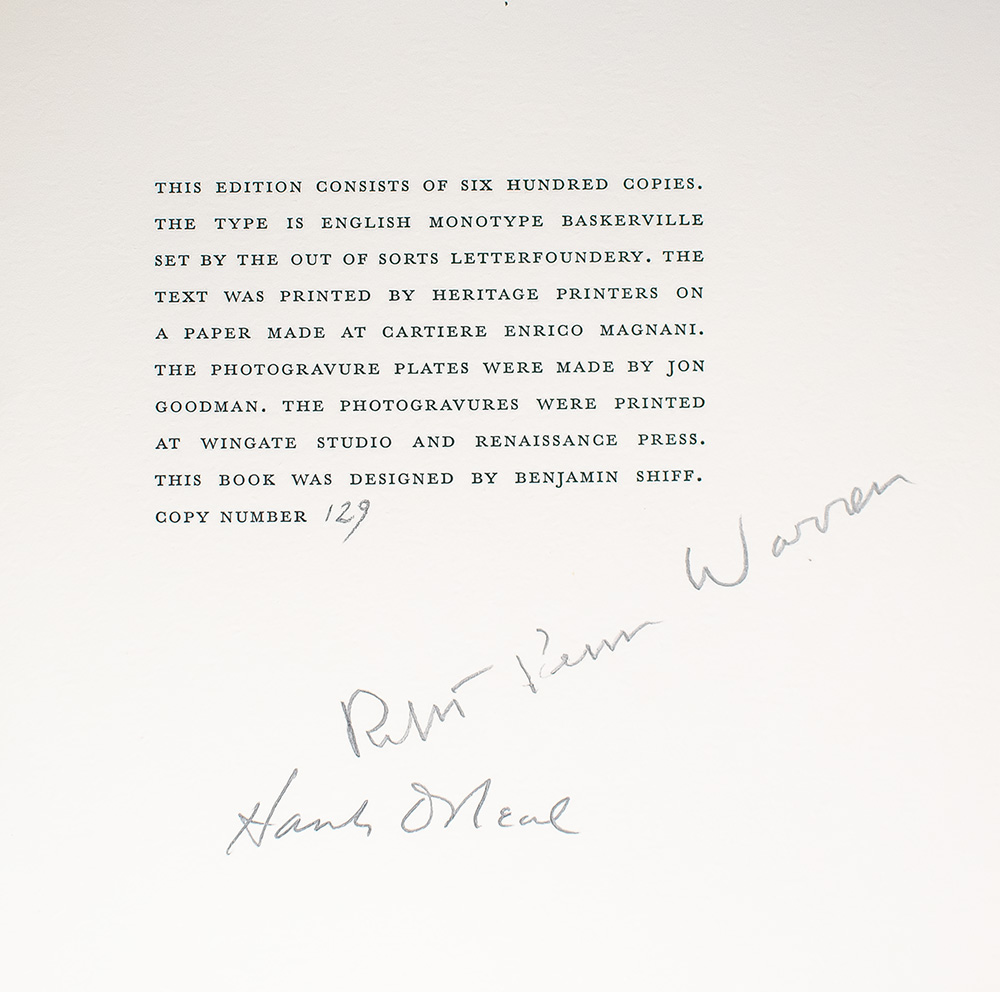 THIS EDITION CONSISTS OF SIX HUNDRED COPIES.
THE TYPE IS ENGLISH MONOTYPE BASKERVILLE
SET BY THE OUT OF SORTS LETTERFOUNDERY. THE
TEXT WAS PRINTED BY HERITAGE PRINTERS ON
A PAPER MADE AT CARTIERE ENRICO MAGNANI.
THE PHOTOGRAVURE PLATES WERE MADE BY JON
GOODMAN. THE PHOTOGRAVURES WERE PRINTED
AT WINGATE STUDIO AND RENAISSANCE PRESS.
THIS BOOK WAS DESIGNED BY BENJAMIN SHIFF.
COPY NUMBER 129
Robert Penn Warren
Hank O'Neal